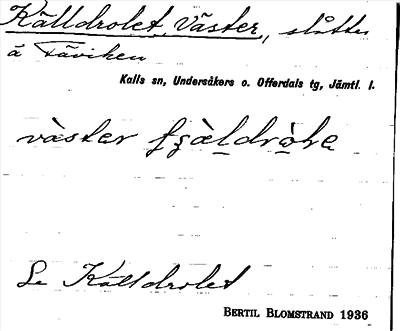 Källdrolet, Väster, slåtter
å Täviken
Kalls sn, Undersåkers o. Offerdals tg, Jämtl. l.
väster
Se Källdrolet
BERTIL BLOMSTRAND 1936